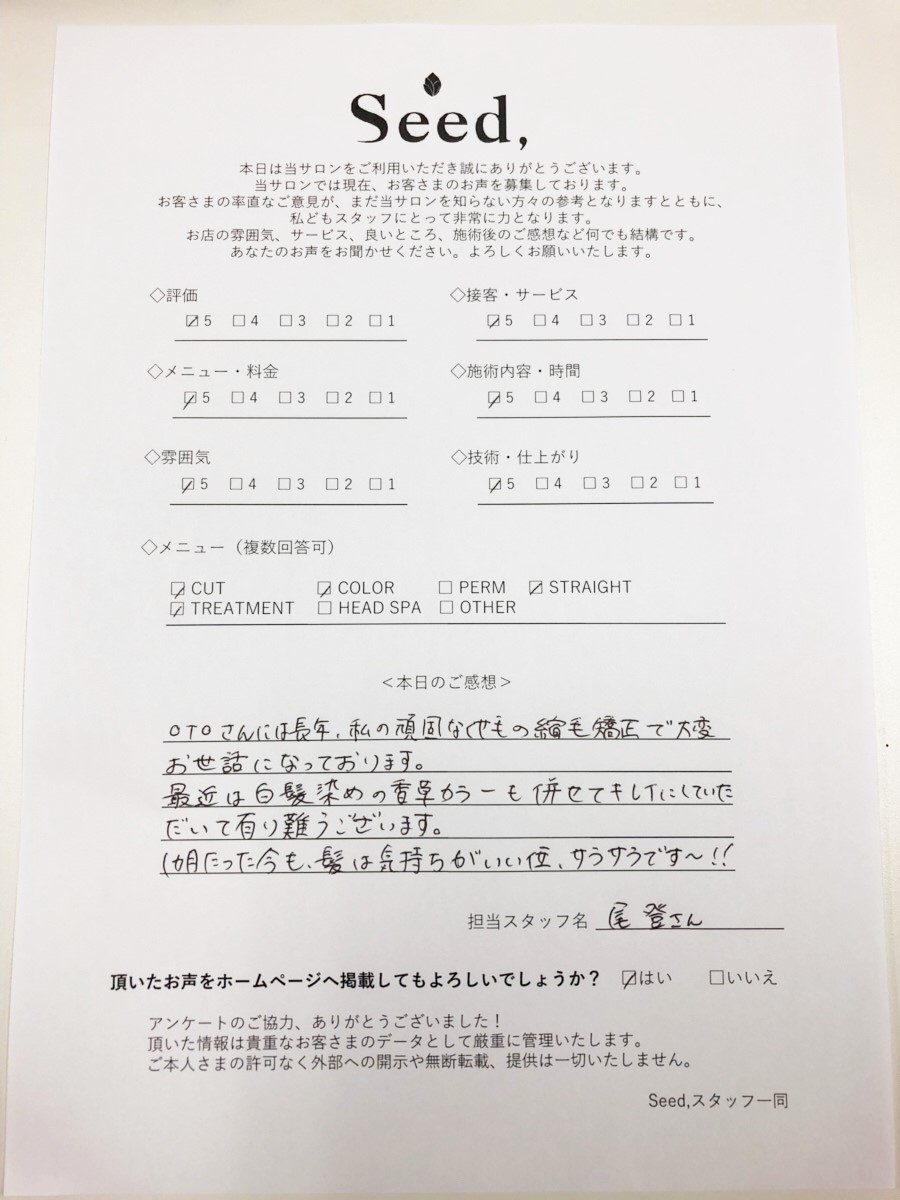 Seed,
本日は当サロンをご利用いただき誠にありがとうございます。
当サロンでは現在、お客さまのお声を募集しております。
お客さまの率直なご意見が、まだ当サロンを知らない方々の参考となりますとともに、
私どもスタッフにとって非常に力となります。
お店の雰囲気、サービス、良いところ、施術後のご感想など何でも結構です。
あなたのお声をお聞かせください。よろしくお願いいたします。
◇評価 ◇接客・サービス
☑5 □4 □3 □2 □1 ☑5 □4 □3 □2 □1
◇メニュー・料金 ◇施術内容・時間
☑5 □4 □3 □2 □1 ☑5 □4 □3 □2 □1
◇雰囲気 ◇技術・仕上がり
☑5 □4 □3 □2 □1 ☑5 □4 □3 □2 □1
◇メニュー（複数回答可）
☑CUT ☑COLOR □PERM ☑STRAIGHT
☑TREATMENT □HEAD SPA □OTHER
＜本日のご感想＞
OTOさんには長年、私の頑固なくせもの縮毛矯正で大変
お世話になっております。
最近は白髪染めの香草カラーも併せてキレイにしていた
だいて有り難うございます。
1ヵ月たった今も、髪は気持ちがいい位、サラサラです〜!!
担当スタッフ名 尾登さん
頂いたお声をホームページへ掲載してもよろしいでしょうか？ ☑はい □いいえ
アンケートのご協力、ありがとうございました！
頂いた情報は貴重なお客さまのデータとして厳重に管理いたします。
ご本人さまの許可なく外部への開示や無断転載、提供は一切いたしません。
Seed,スタッフ一同